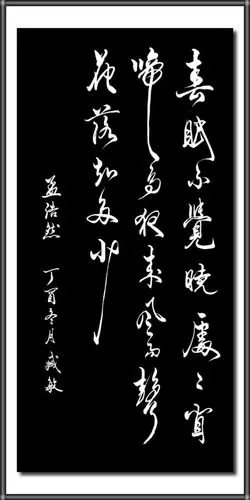 春眠不覺曉處〻聞
啼鳥夜來風雨聲
花落知多少
孟浩然 丁酉冬月 臧敏